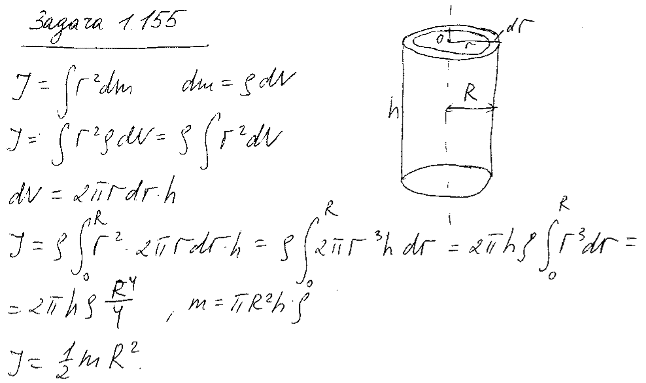 Задача 1.155
J = ∫ r² dm   dm = ρ dV
J = ∫ r² ρ dV = ρ ∫ r² dV
dV = 2πr dr · h
J = ρ ∫₀ᴿ r² · 2πr dr · h = ρ ∫₀ᴿ 2πr³h dr = 2πhρ ∫₀ᴿ r³ dr =
= 2πhρ R⁴/4 , m = πR²h·ρ
J = 1/2 mR².
0 r dr
h R